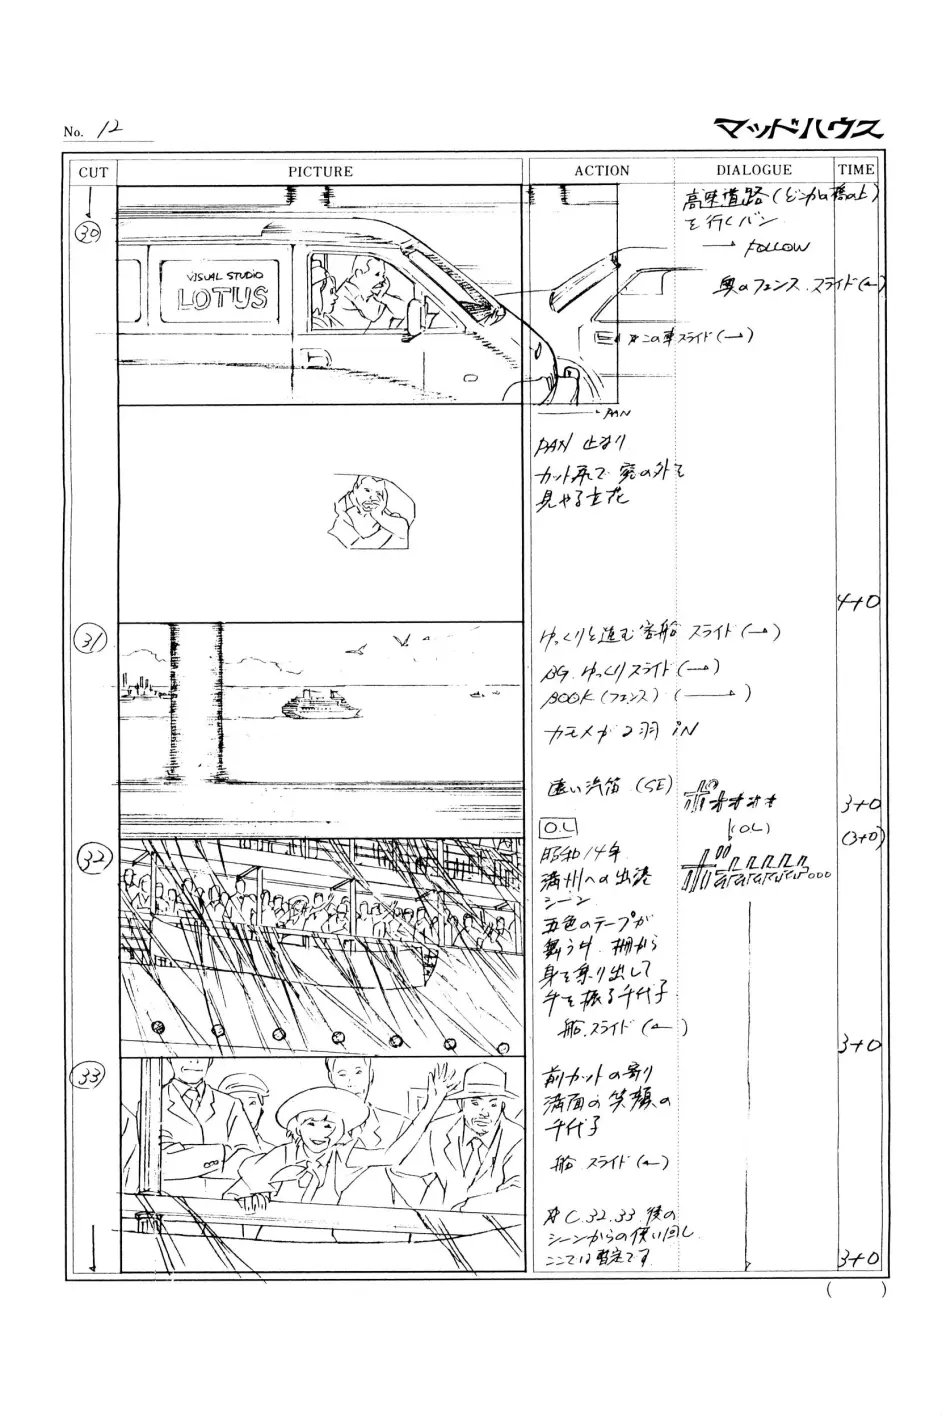 No. 12
マッドハウス
CUT PICTURE ACTION DIALOGUE TIME
30
VISUAL STUDIO
LOTUS
高速道路(どこかの橋の上)
を行くバン
→ FOLLOW
奥のフェンス、スライド(←)
※この車スライド(→)
→ PAN
PAN 止まり
カット尻で窓の外を
見やる立花
4+0
31
ゆっくりと進む客船 スライド(→)
BG ゆっくりスライド(→)
BOOK(フェンス)(→)
カモメが2羽 iN
遠い汽笛(SE)
3+0
O.L
(OL)
(3+0)
32
昭和14年
満州への出港
シーン
五色のテープが
舞う中 柵から
身を乗り出して
手を振る千代子
船、スライド(←)
3+0
33
前カットの寄り
満面の笑顔の
千代子
船 スライド(←)
※C.32.33 後の
シーンからの使い回し
ここでは暫定です
3+0
( )